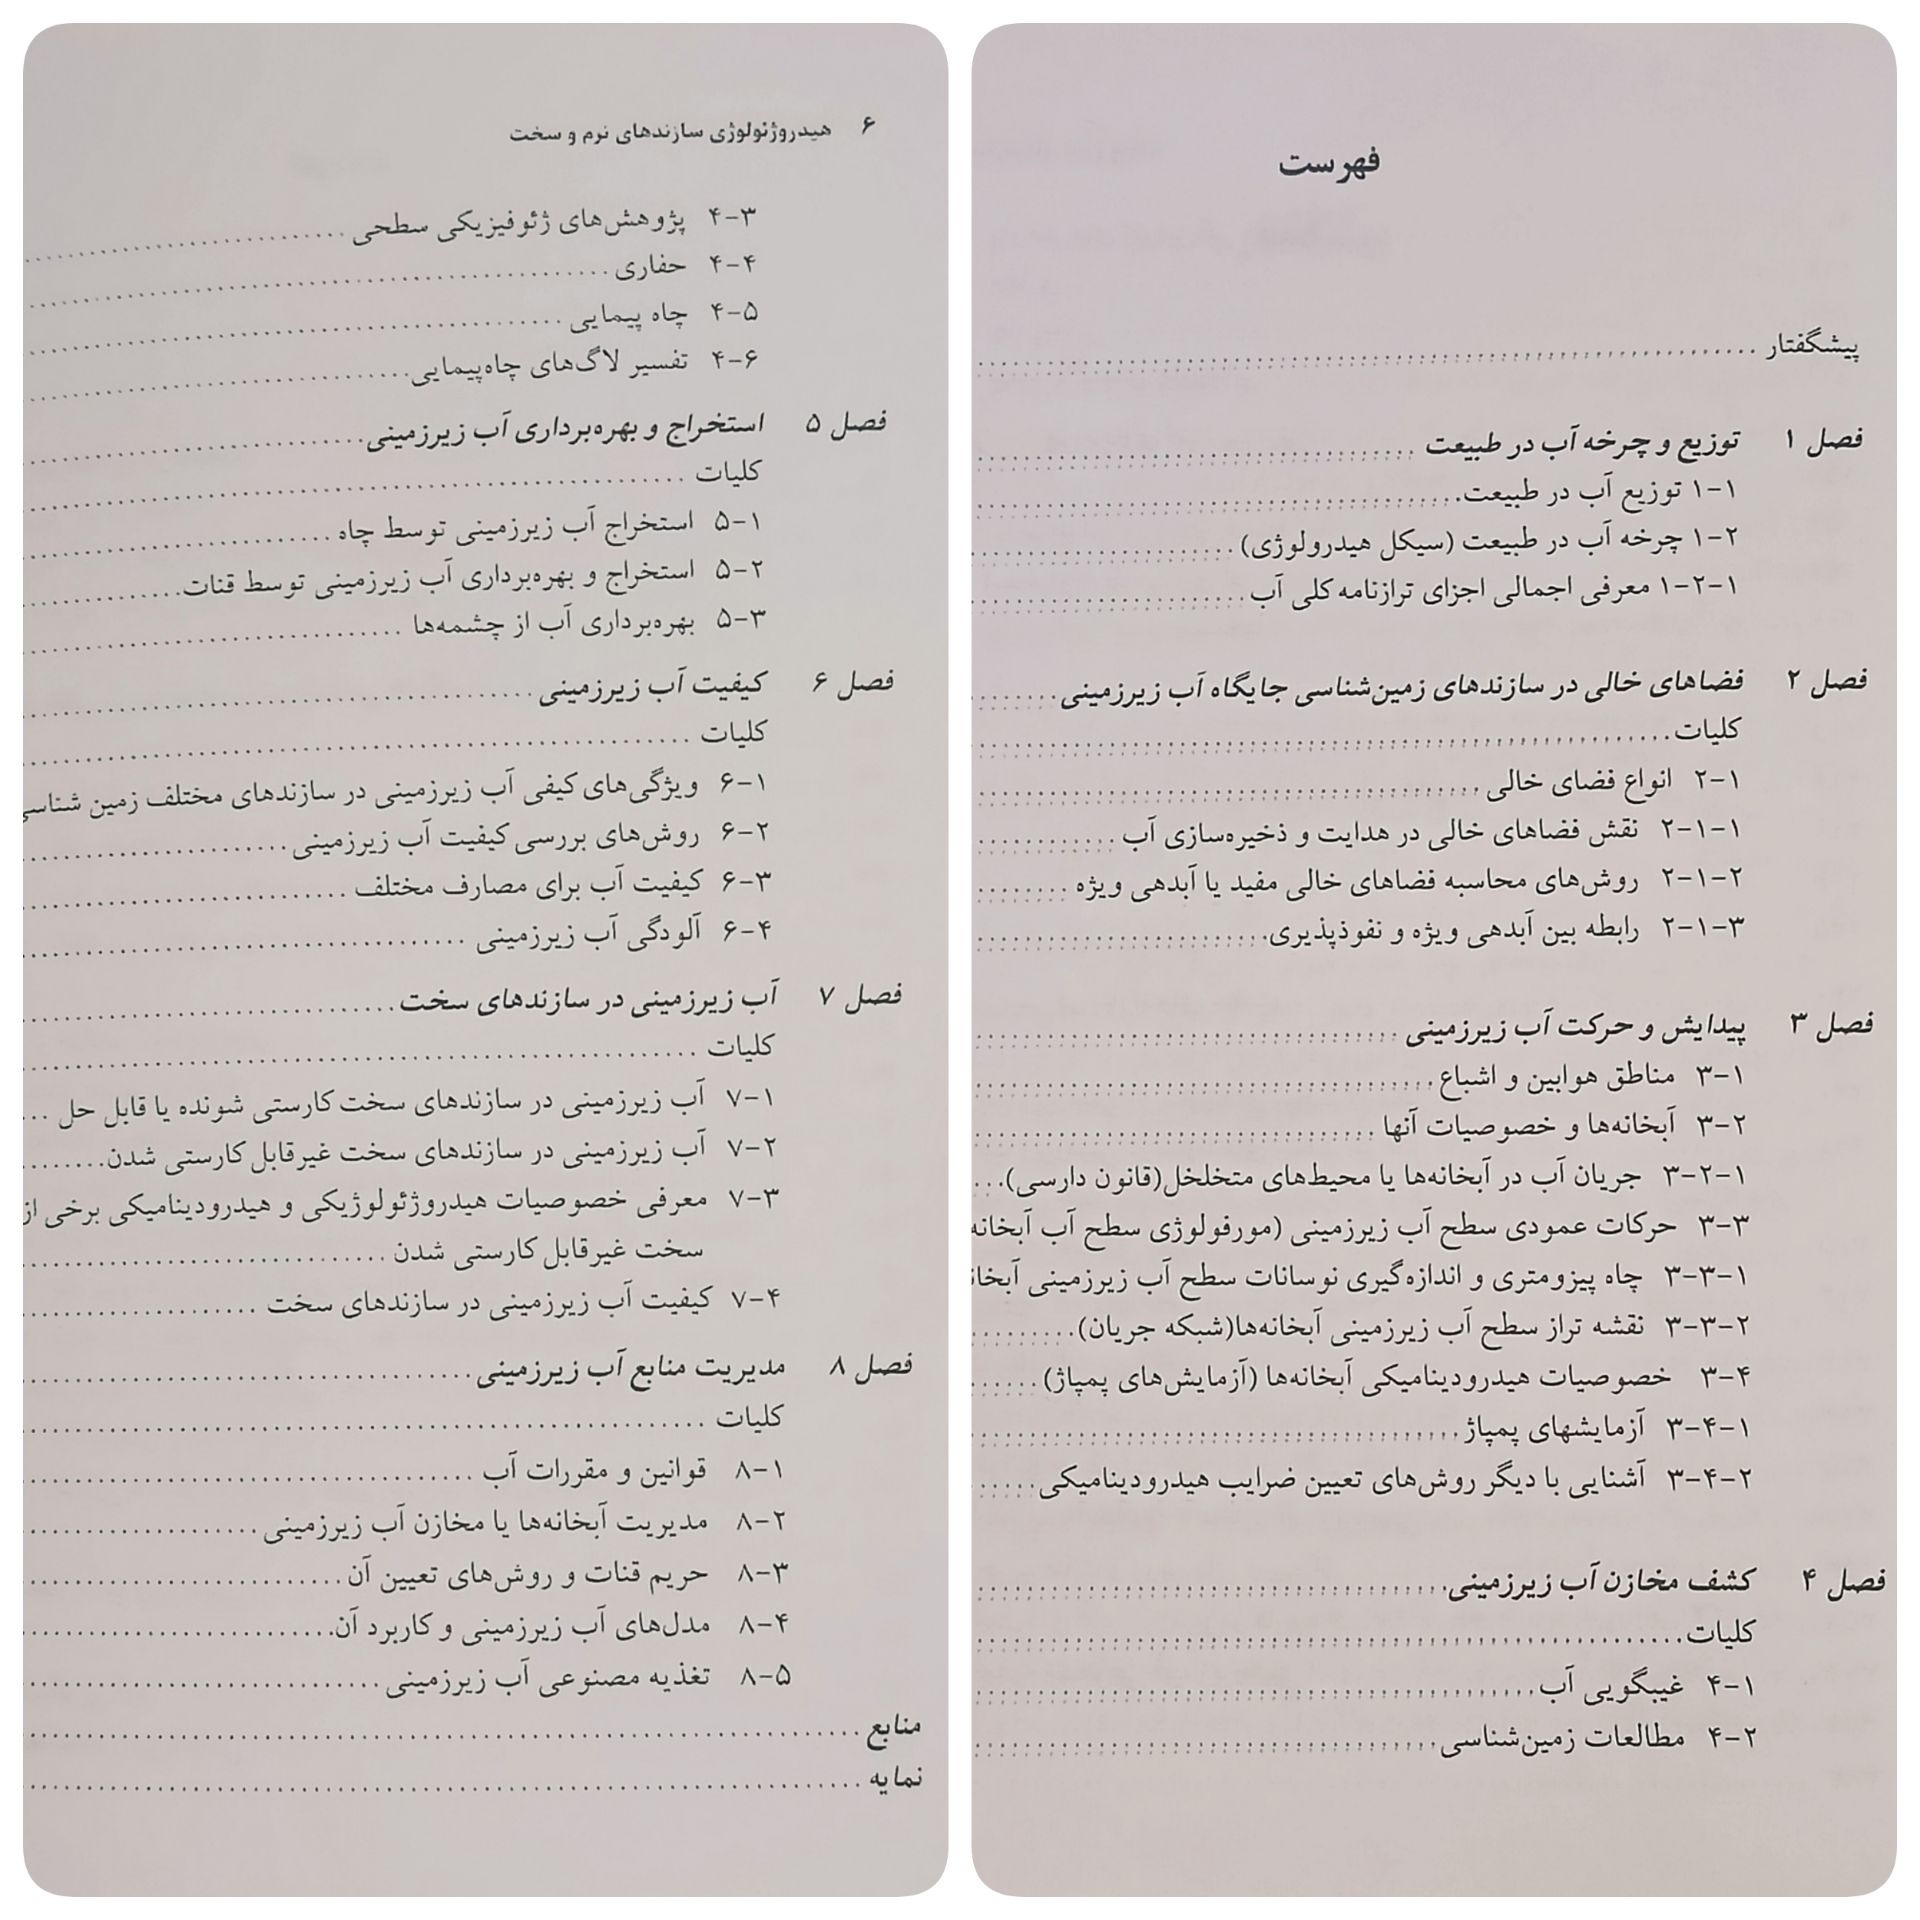 فهرست
پیشگفتار
فصل ۱ توزیع و چرخه آب در طبیعت
۱-۱ توزیع آب در طبیعت
۱-۲ چرخه آب در طبیعت (سیکل هیدرولوژی)
۱-۲-۱ معرفی اجمالی اجزای ترازنامه کلی آب
فصل ۲ فضاهای خالی در سازندهای زمین‌شناسی جایگاه آب زیرزمینی
کلیات
۲-۱ انواع فضای خالی
۲-۱-۱ نقش فضاهای خالی در هدایت و ذخیره‌سازی آب
۲-۱-۲ روش‌های محاسبه فضاهای خالی مفید یا آبدهی ویژه
۲-۱-۳ رابطه بین آبدهی ویژه و نفوذپذیری
فصل ۳ پیدایش و حرکت آب زیرزمینی
۳-۱ مناطق هوابین و اشباع
۳-۲ آبخانه‌ها و خصوصیات آنها
۳-۲-۱ جریان آب در آبخانه‌ها یا محیط‌های متخلخل(قانون دارسی)
۳-۳ حرکات عمودی سطح آب زیرزمینی (مورفولوژی سطح آب آبخانه
۳-۳-۱ چاه پیزومتری و اندازه‌گیری نوسانات سطح آب زیرزمینی
۳-۳-۲ نقشه تراز سطح آب زیرزمینی آبخانه‌ها(شبکه جریان)
۳-۴ خصوصیات هیدرودینامیکی آبخانه‌ها (آزمایش‌های پمپاژ)
۳-۴-۱ آزمایشهای پمپاژ
۳-۴-۲ آشنایی با دیگر روش‌های تعیین ضرایب هیدرودینامیکی
فصل ۴ کشف مخازن آب زیرزمینی
کلیات
۴-۱ غیبگویی آب
۴-۲ مطالعات زمین‌شناسی
۶ هیدروژئولوژی سازندهای نرم و سخت
۴-۳ پژوهش‌های ژئوفیزیکی سطحی
۴-۴ حفاری
۴-۵ چاه پیمایی
۴-۶ تفسیر لاگ‌های چاه‌پیمایی
فصل ۵ استخراج و بهره‌برداری آب زیرزمینی
کلیات
۵-۱ استخراج آب زیرزمینی توسط چاه
۵-۲ استخراج و بهره‌برداری آب زیرزمینی توسط قنات
۵-۳ بهره‌برداری آب از چشمه‌ها
فصل ۶ کیفیت آب زیرزمینی
کلیات
۶-۱ ویژگی‌های کیفی آب زیرزمینی در سازندهای مختلف زمین شناسی
۶-۲ روش‌های بررسی کیفیت آب زیرزمینی
۶-۳ کیفیت آب برای مصارف مختلف
۶-۴ آلودگی آب زیرزمینی
فصل ۷ آب زیرزمینی در سازندهای سخت
کلیات
۷-۱ آب زیرزمینی در سازندهای سخت کارستی شونده یا قابل حل
۷-۲ آب زیرزمینی در سازندهای سخت غیرقابل کارستی شدن
۷-۳ معرفی خصوصیات هیدروژئولوژیکی و هیدرودینامیکی برخی از
سخت غیرقابل کارستی شدن
۷-۴ کیفیت آب زیرزمینی در سازندهای سخت
فصل ۸ مدیریت منابع آب زیرزمینی
کلیات
۸-۱ قوانین و مقررات آب
۸-۲ مدیریت آبخانه‌ها یا مخازن آب زیرزمینی
۸-۳ حریم قنات و روش‌های تعیین آن
۸-۴ مدل‌های آب زیرزمینی و کاربرد آن
۸-۵ تغذیه مصنوعی آب زیرزمینی
منابع
نمایه